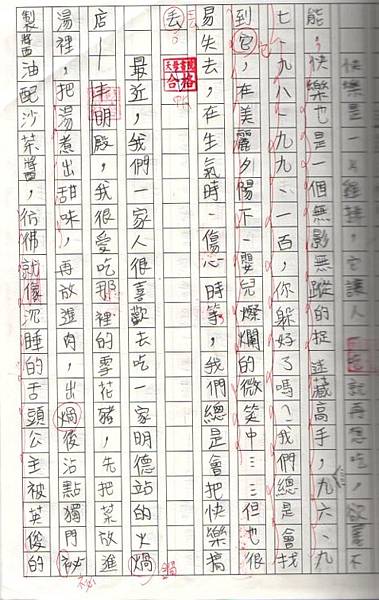 快樂是一片雞排，它讓人一吃就再想吃，欲罷不
能；快樂也是一個無影無蹤的捉迷藏高手，九六、九
七、九八、九九、一百，你躲好了嗎？我們總是會找
到它，在美麗夕陽下、嬰兒燦爛的微笑中……但也很
易失去，在生氣時、傷心時等，我們總是會把快樂搞
丟。
合格
最近，我們一家人很喜歡去吃一家明德站的火鍋
鍋
店——丰明殿，我很愛吃那裡的雪花豬，先把菜放進
湯裡，把湯煮出甜味，再放進肉，出鍋後沾點獨門祕
祕
製醬油配沙茶醬，彷彿就像沉睡的舌頭公主被英俊的